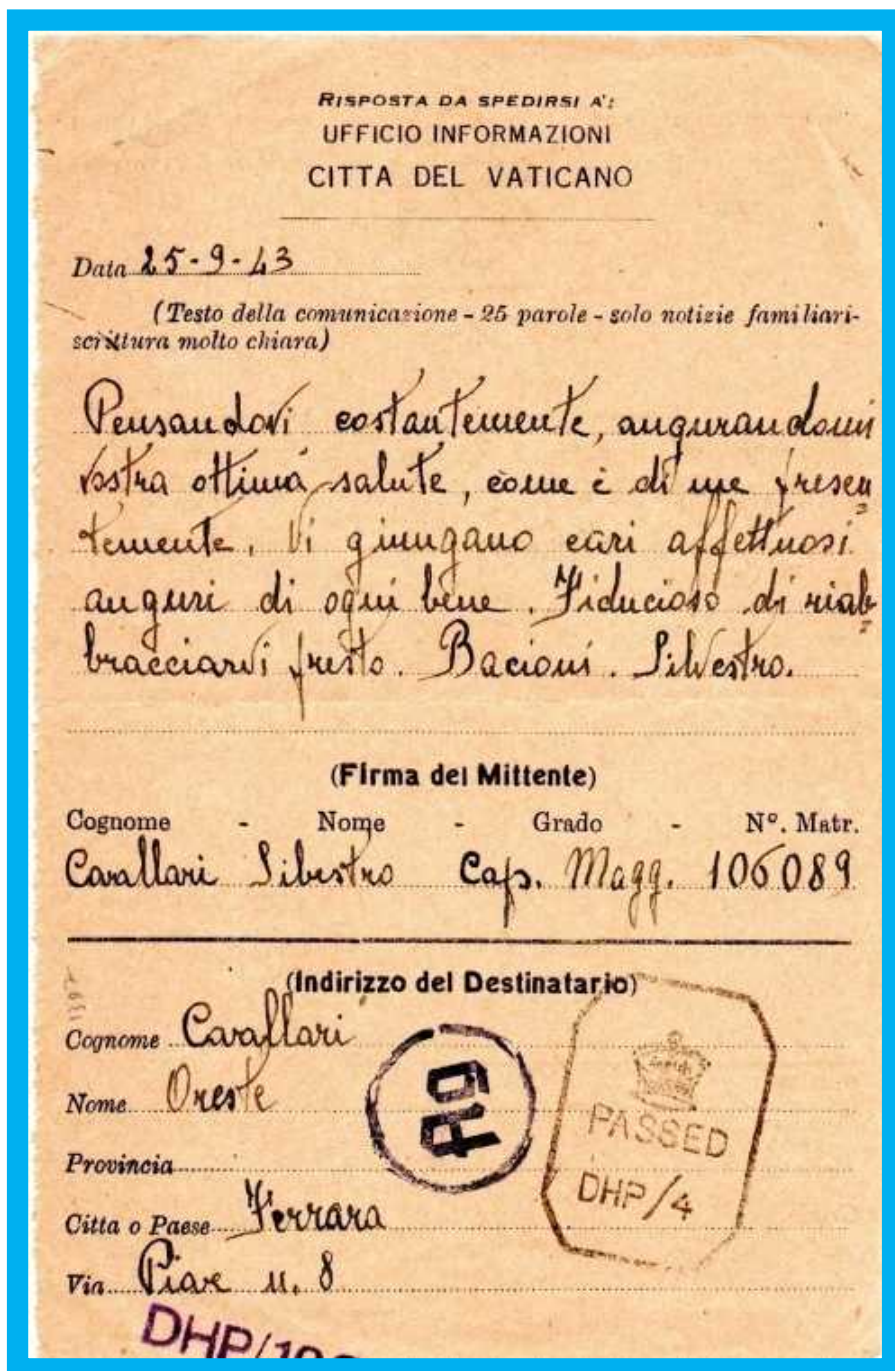 RISPOSTA DA SPEDIRSI A':
UFFICIO INFORMAZIONI
CITTA DEL VATICANO
Data 25-9-43
(Testo della comunicazione - 25 parole - solo notizie familiari-
scrittura molto chiara)
Pensandovi costantemente, augurandomi
vostra ottima salute, come è di me presen=
temente. Vi giungano cari affettuosi
auguri di ogni bene. Fiducioso di riab=
bracciarvi presto. Bacioni. Silvestro.
(Firma del Mittente)
Cognome - Nome - Grado - N°. Matr.
Cavallari Silvestro Cap. Magg. 106089
(Indirizzo del Destinatario)
Cognome Cavallari
Nome Oreste
Provincia
Citta o Paese Ferrara
Via Piave n. 8
PASSED
DHP/4